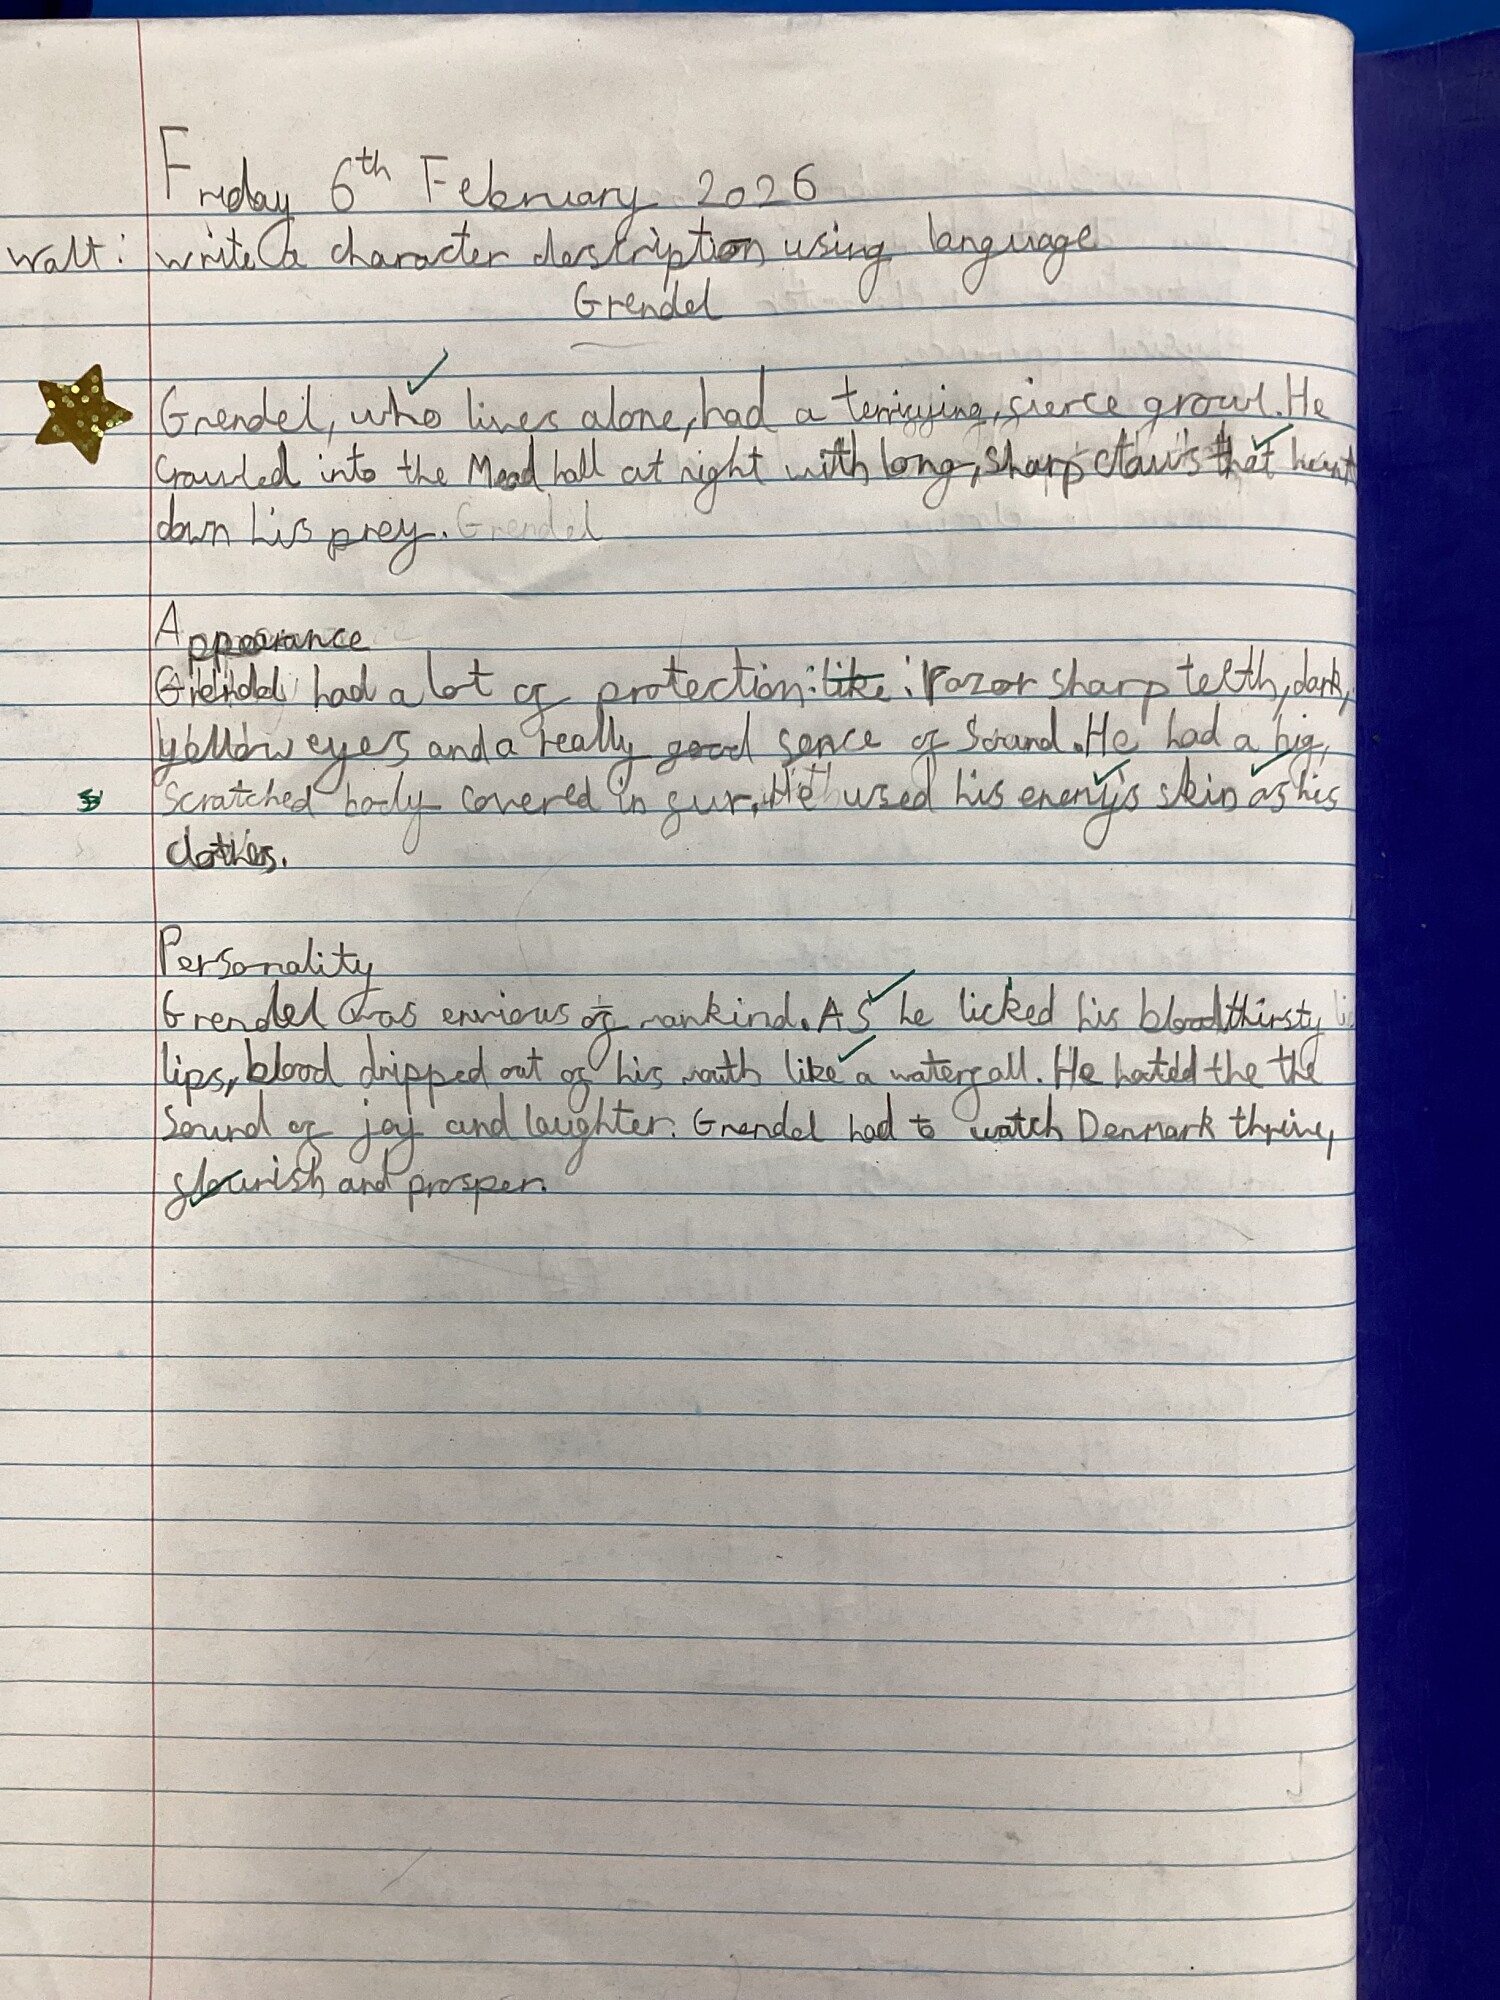 Friday 6th February 2026
Walt: write a character description using language
Grendel
Grendel, who lives alone, had a terrifying, fierce growl. He
crawled into the Mead hall at night with long, sharp claws that hunt
down his prey. Grendel
Appearance
Grendel had a lot of protection: like: razor sharp teeth, dark,
yellow eyes and a really good sence of sound. He had a big,
scratched body covered in fur. He used his enemy's skin as his
clothes.
Personality
Grendel was envious of mankind. As he licked his bloodthirsty
lips, blood dripped out of his mouth like a waterfall. He hated the the
sound of joy and laughter. Grendel had to watch Denmark thrive,
flourish and prosper.